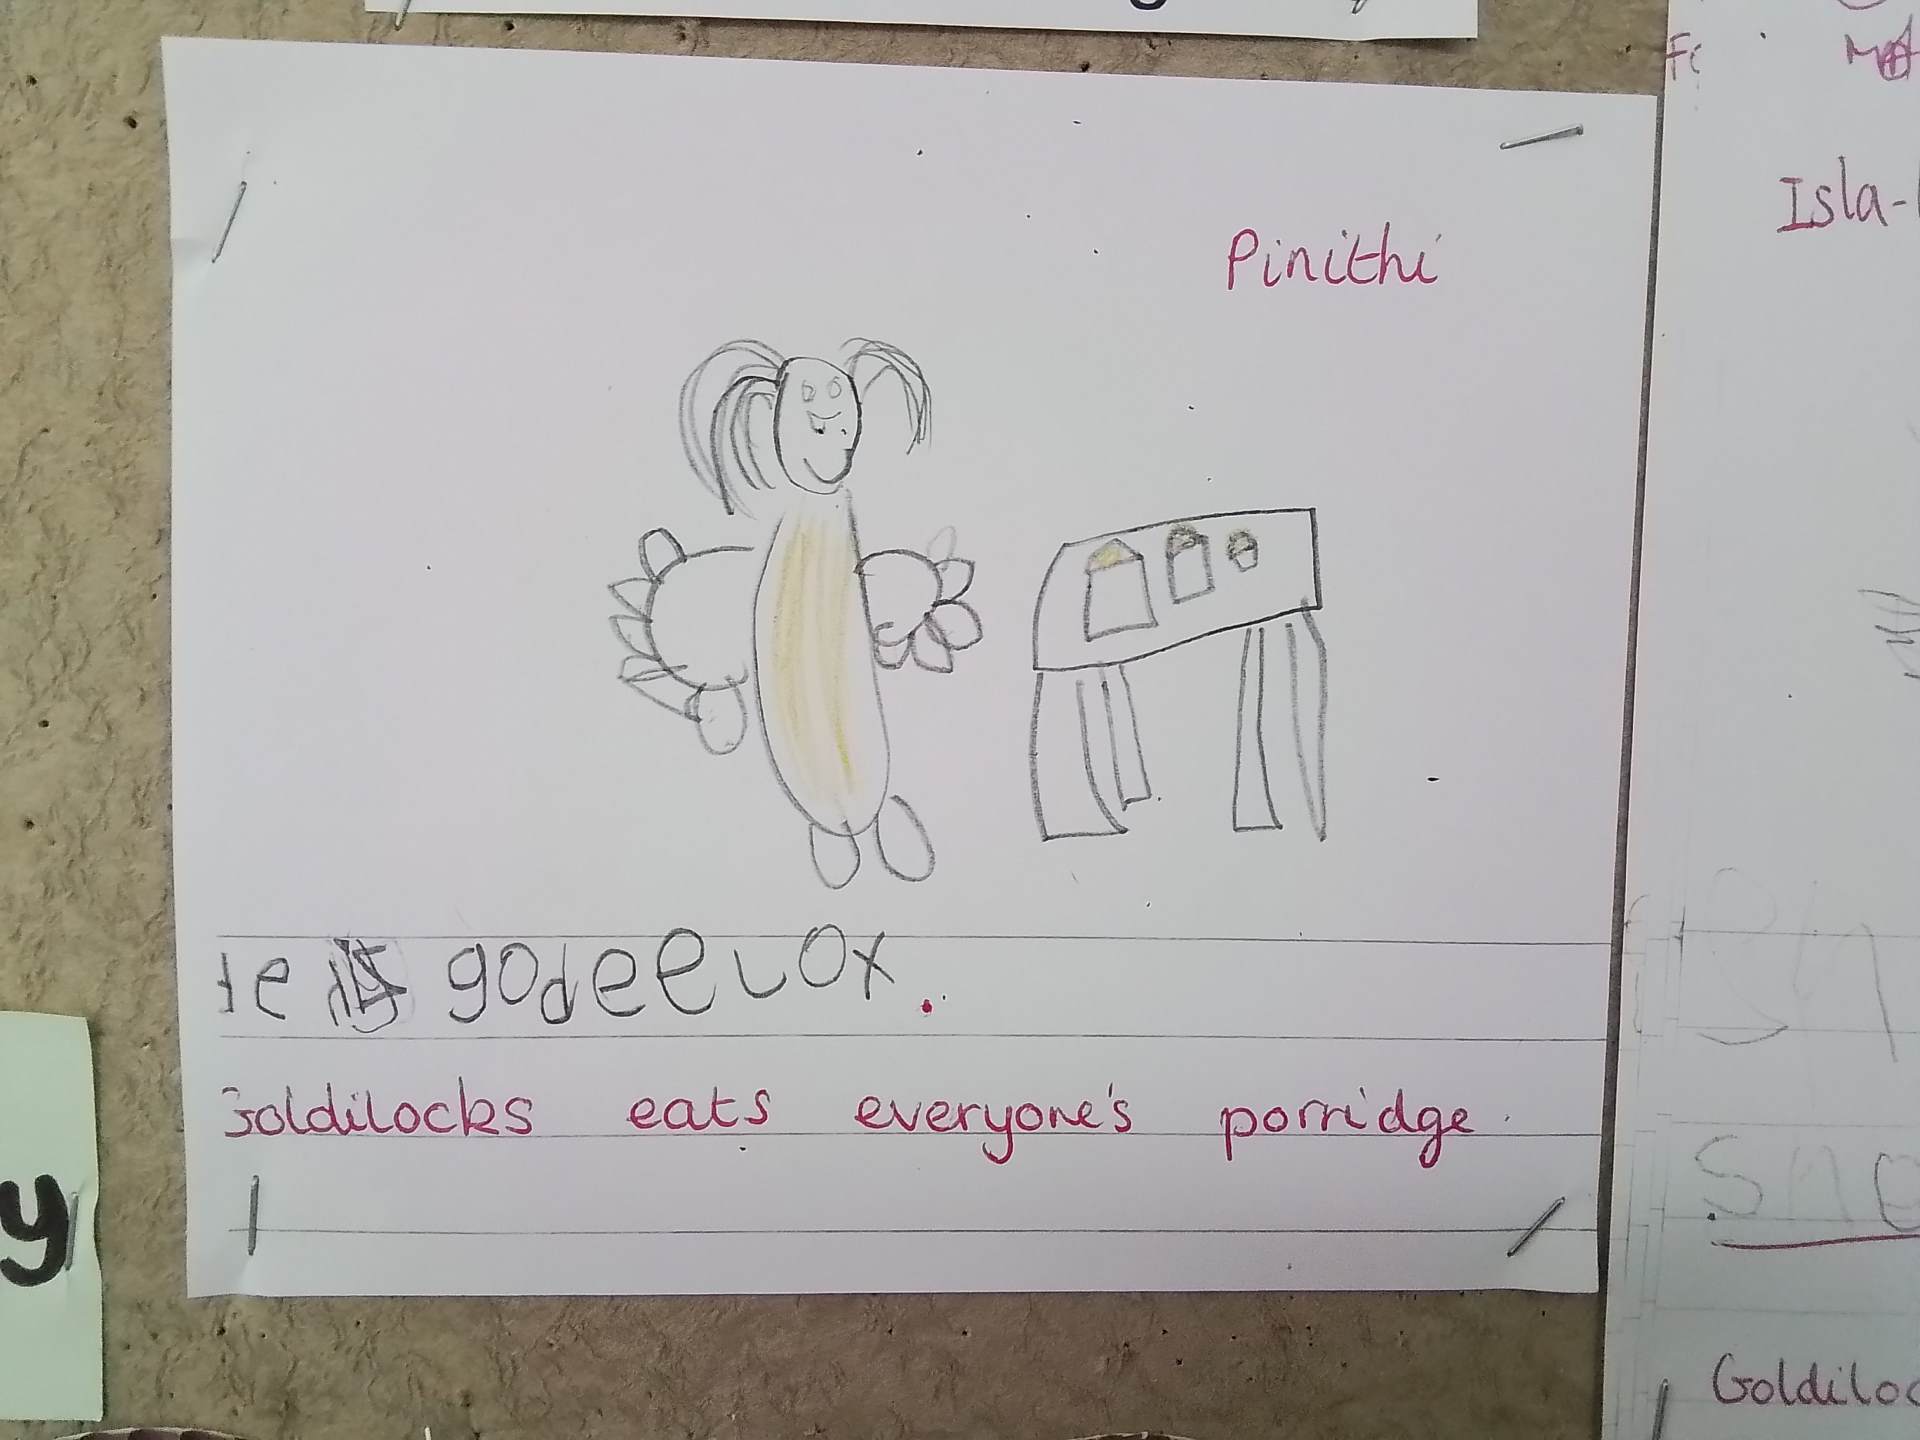 Pinithi
Isla-
godeelox.
Goldilocks eats everyone's porridge.
y
sno
Goldiloc